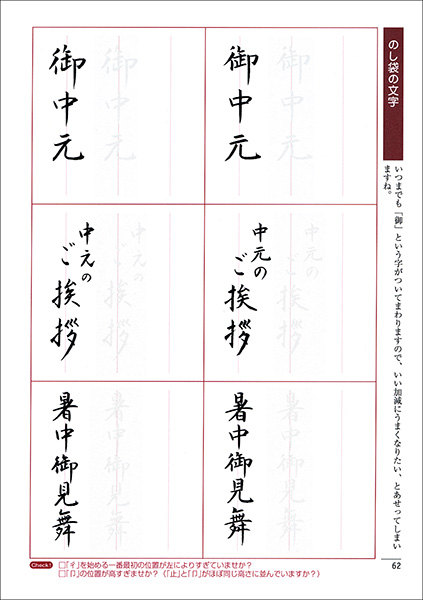 のし袋の文字
いつまでも「御」という字がついてまわりますので、いい加減にうまくなりたい、とあせってしまい
ますね。
御中元
御中元
御中元
御中元
中元の
ご挨拶
中元の
ご挨拶
中元の
ご挨拶
中元の
ご挨拶
暑中御見舞
暑中御見舞
暑中御見舞
暑中御見舞
Check! □「彳」を始める一番最初の位置が左によりすぎていませんか？
□「卩」の位置が高すぎませんか？（「止」と「卩」がほぼ同じ高さに並んでいますか？）
62